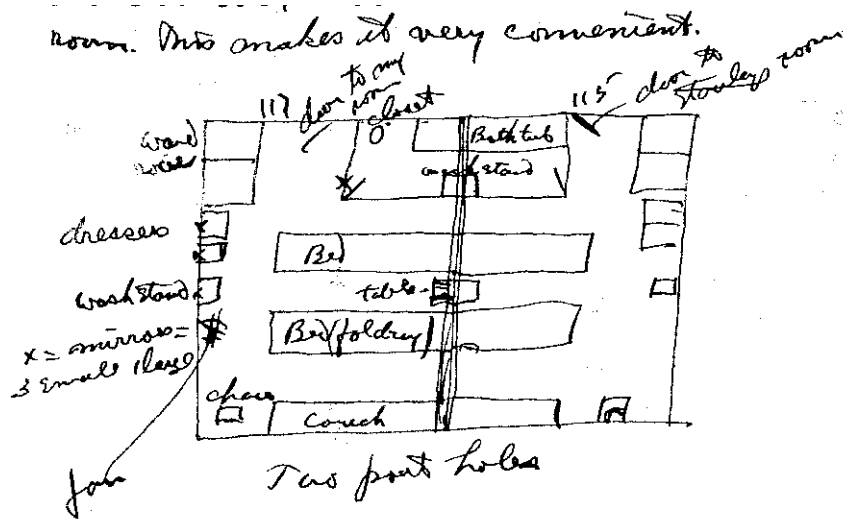 room. This makes it very convenient.
117
door to my
room
closet
115
door to
Stanleys room
ward
robes
Bathtub
washstand
dressers
Bed
washstand
table
x = mirror =
3 small 1 large
Bed (folding)
chair
Couch
fan
Two port holes